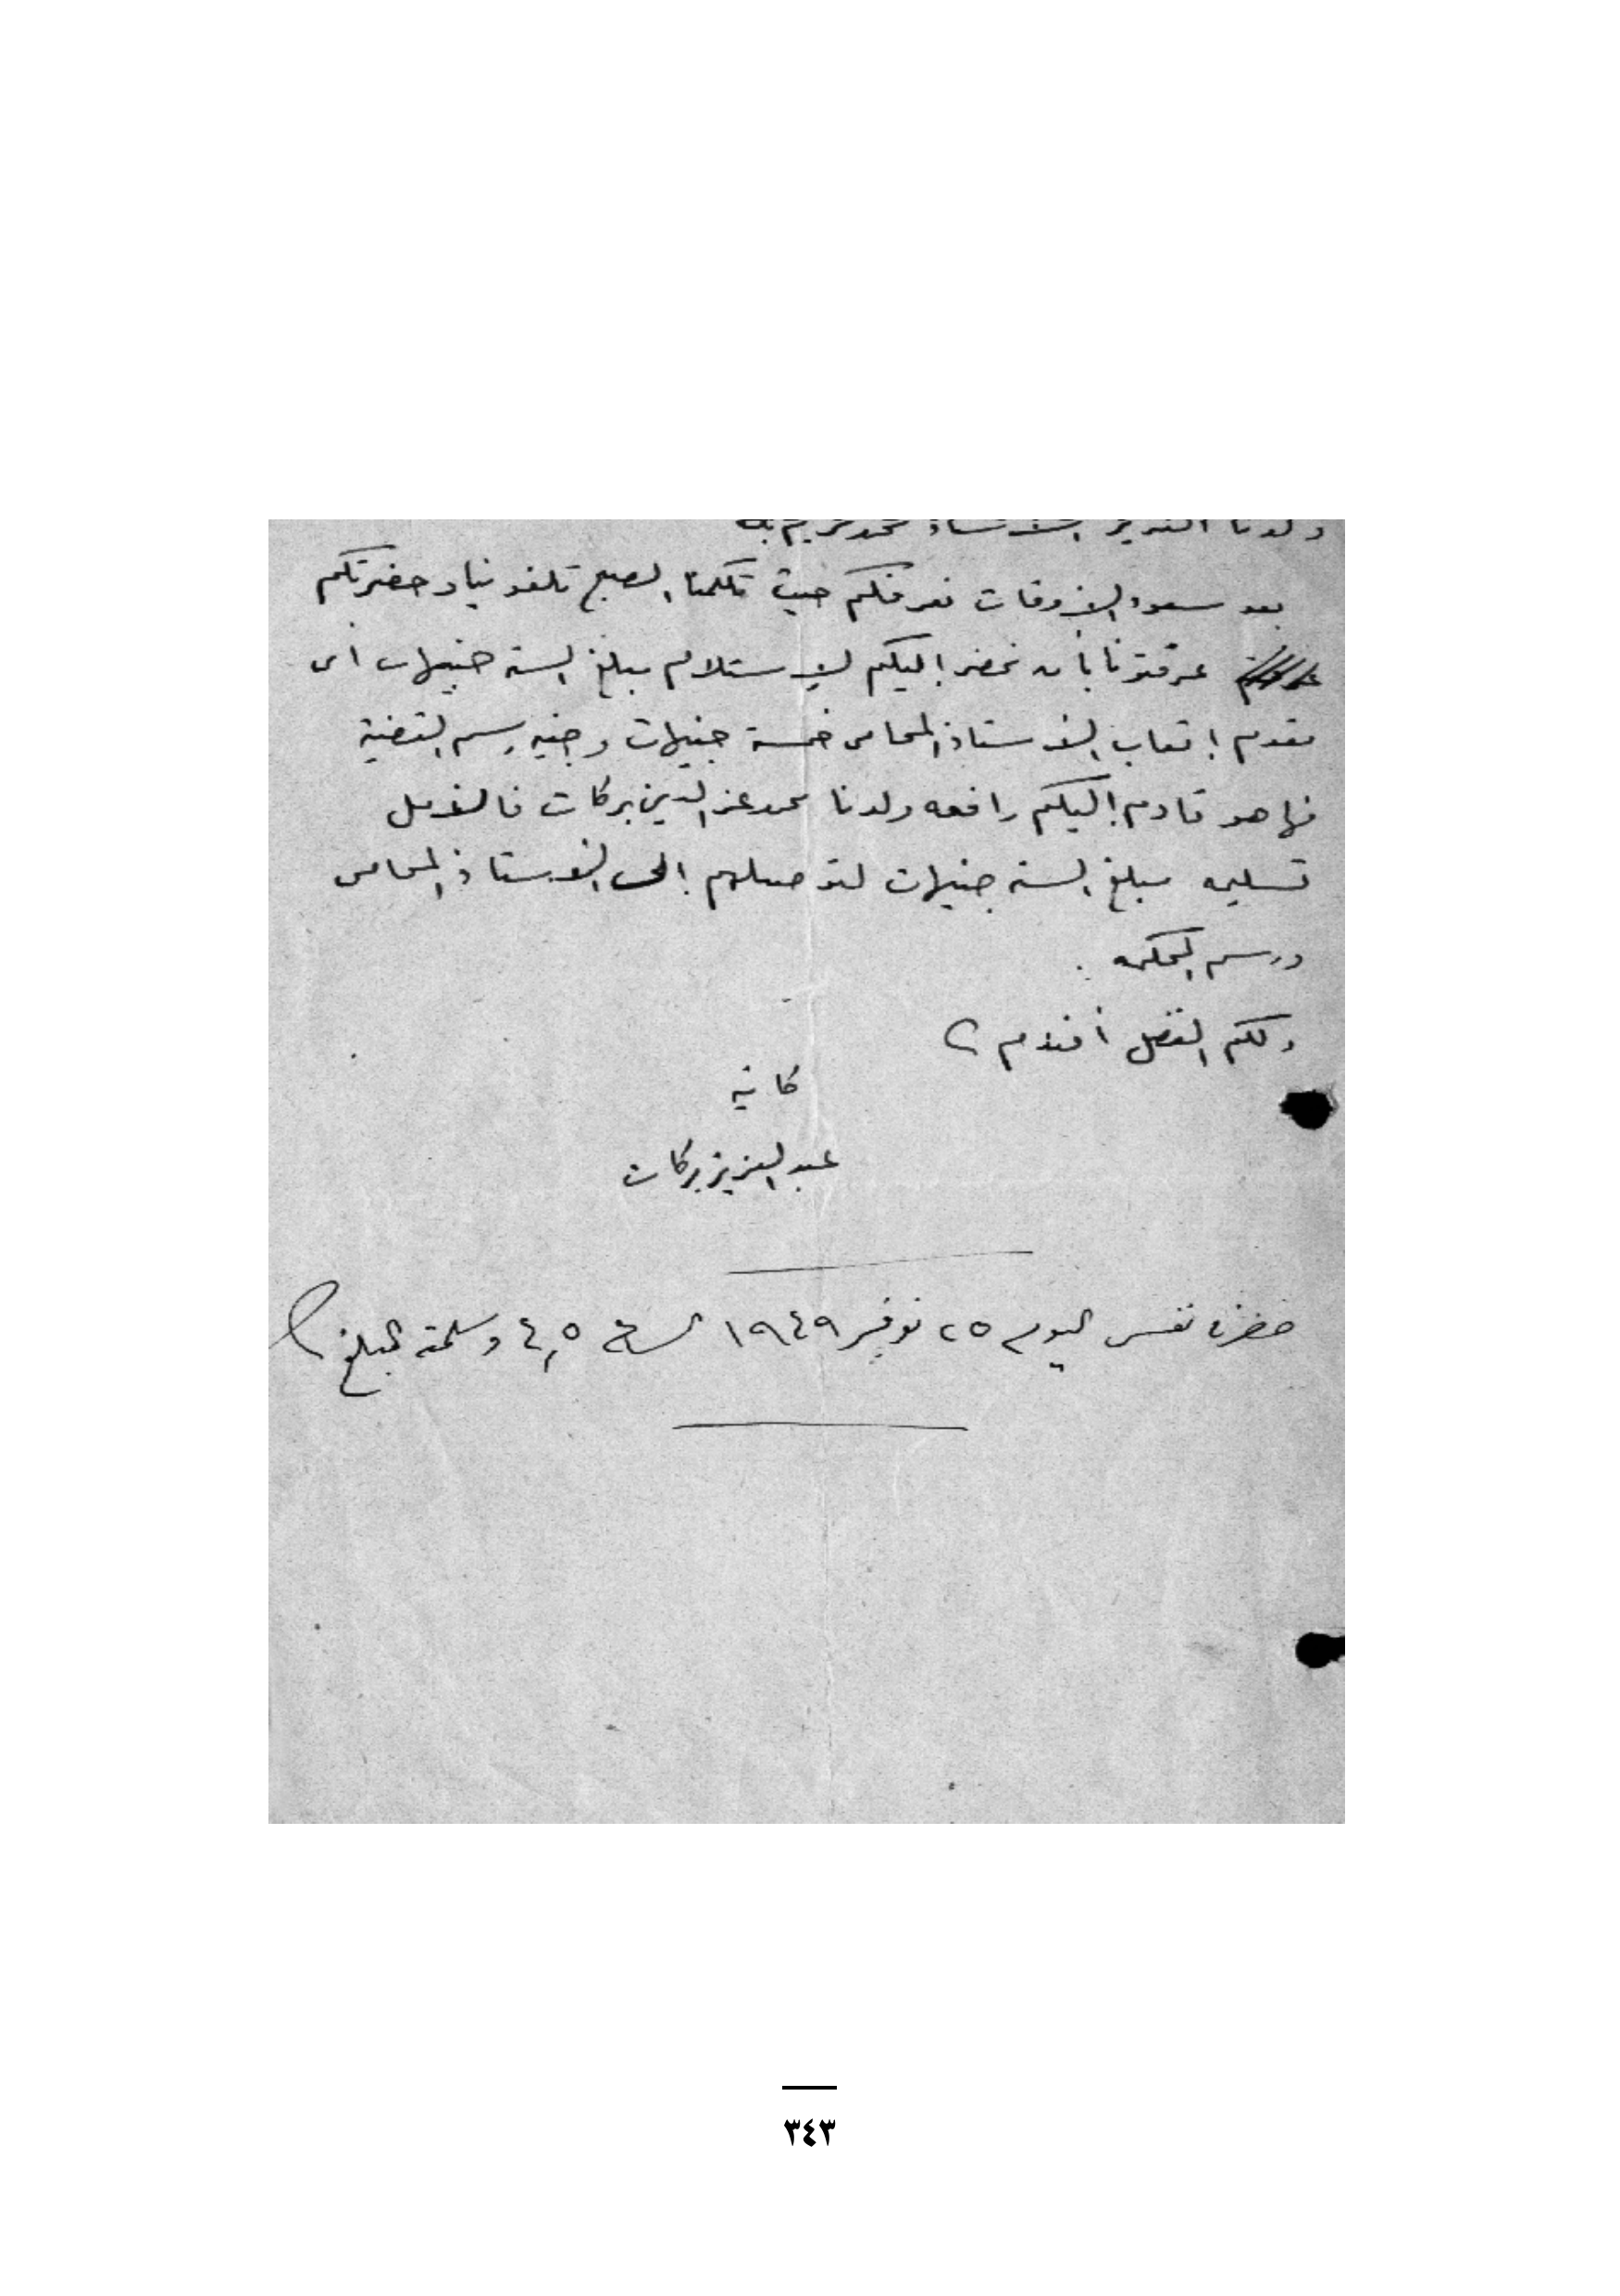 ولدنا العزيز الأستاذ محمد كريم بك
بعد سعود الاوقات نعرفكم حيث تكلمنا الصبح تلفونيا وحضرتكم
عرفتونا بأن نحضر إليكم لإستلام مبلغ الستة جنيهات اى
مقدم إتعاب الأستاذ المحامى خمسة جنيهات وجنيه رسم القضية
فها هو قادم إليكم رافعه ولدنا محمد عز الدين بركات فالأمل
تسليمه مبلغ الستة جنيهات لتوصيلهم إلى الأستاذ المحامى
ورسم المحكمه .
ولكم الفضل أفندم
كاتبه
عبد العزيز بركات
حضر نفس اليوم ٢٥ نوفمبر ١٩٤٩ الساعة ٤,٥ وسلمته المبلغ
٣٤٣